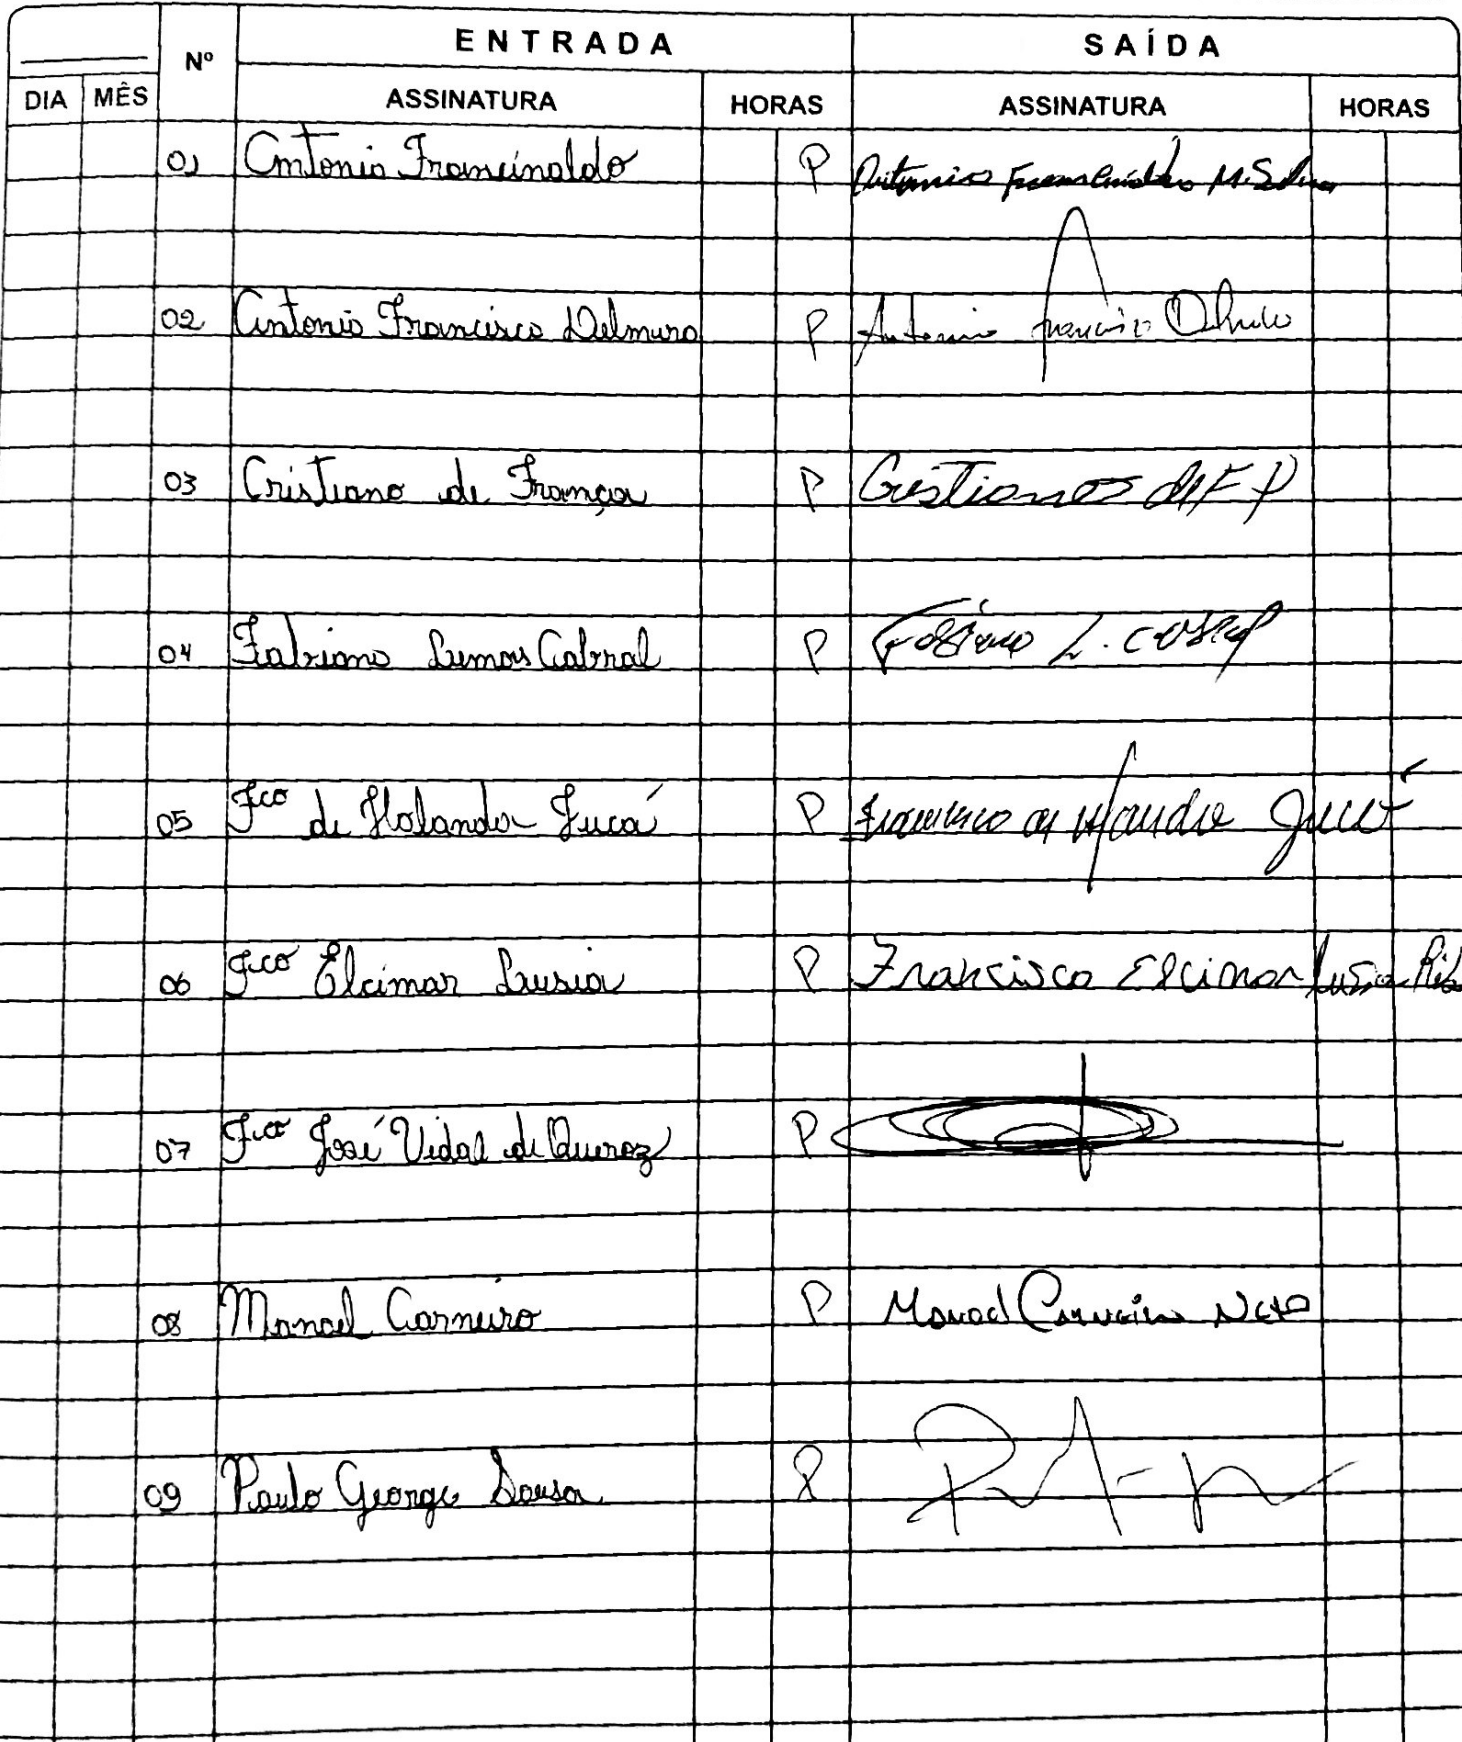 ENTRADA SAÍDA
Nº
DIA MÊS ASSINATURA HORAS ASSINATURA HORAS
01 Antonio Francinaldo P Antonio Francinaldo M. Silva
02 Antonio Francisco Delmiro P Antonio Francisco
03 Cristiano de França P Cristiano de F P
04 Fabiano Lemos Cabral P Fabiano L.
05 Fco de Holanda Jucá P Francisco de Holanda Jucá
06 Fco Elcimar Lusia P Francisco Elcimar Lusia
07 Fco José Vidal de Queroz P
08 Manoel Carneiro P Manoel Carneiro Neto
09 Paulo George Sousa P